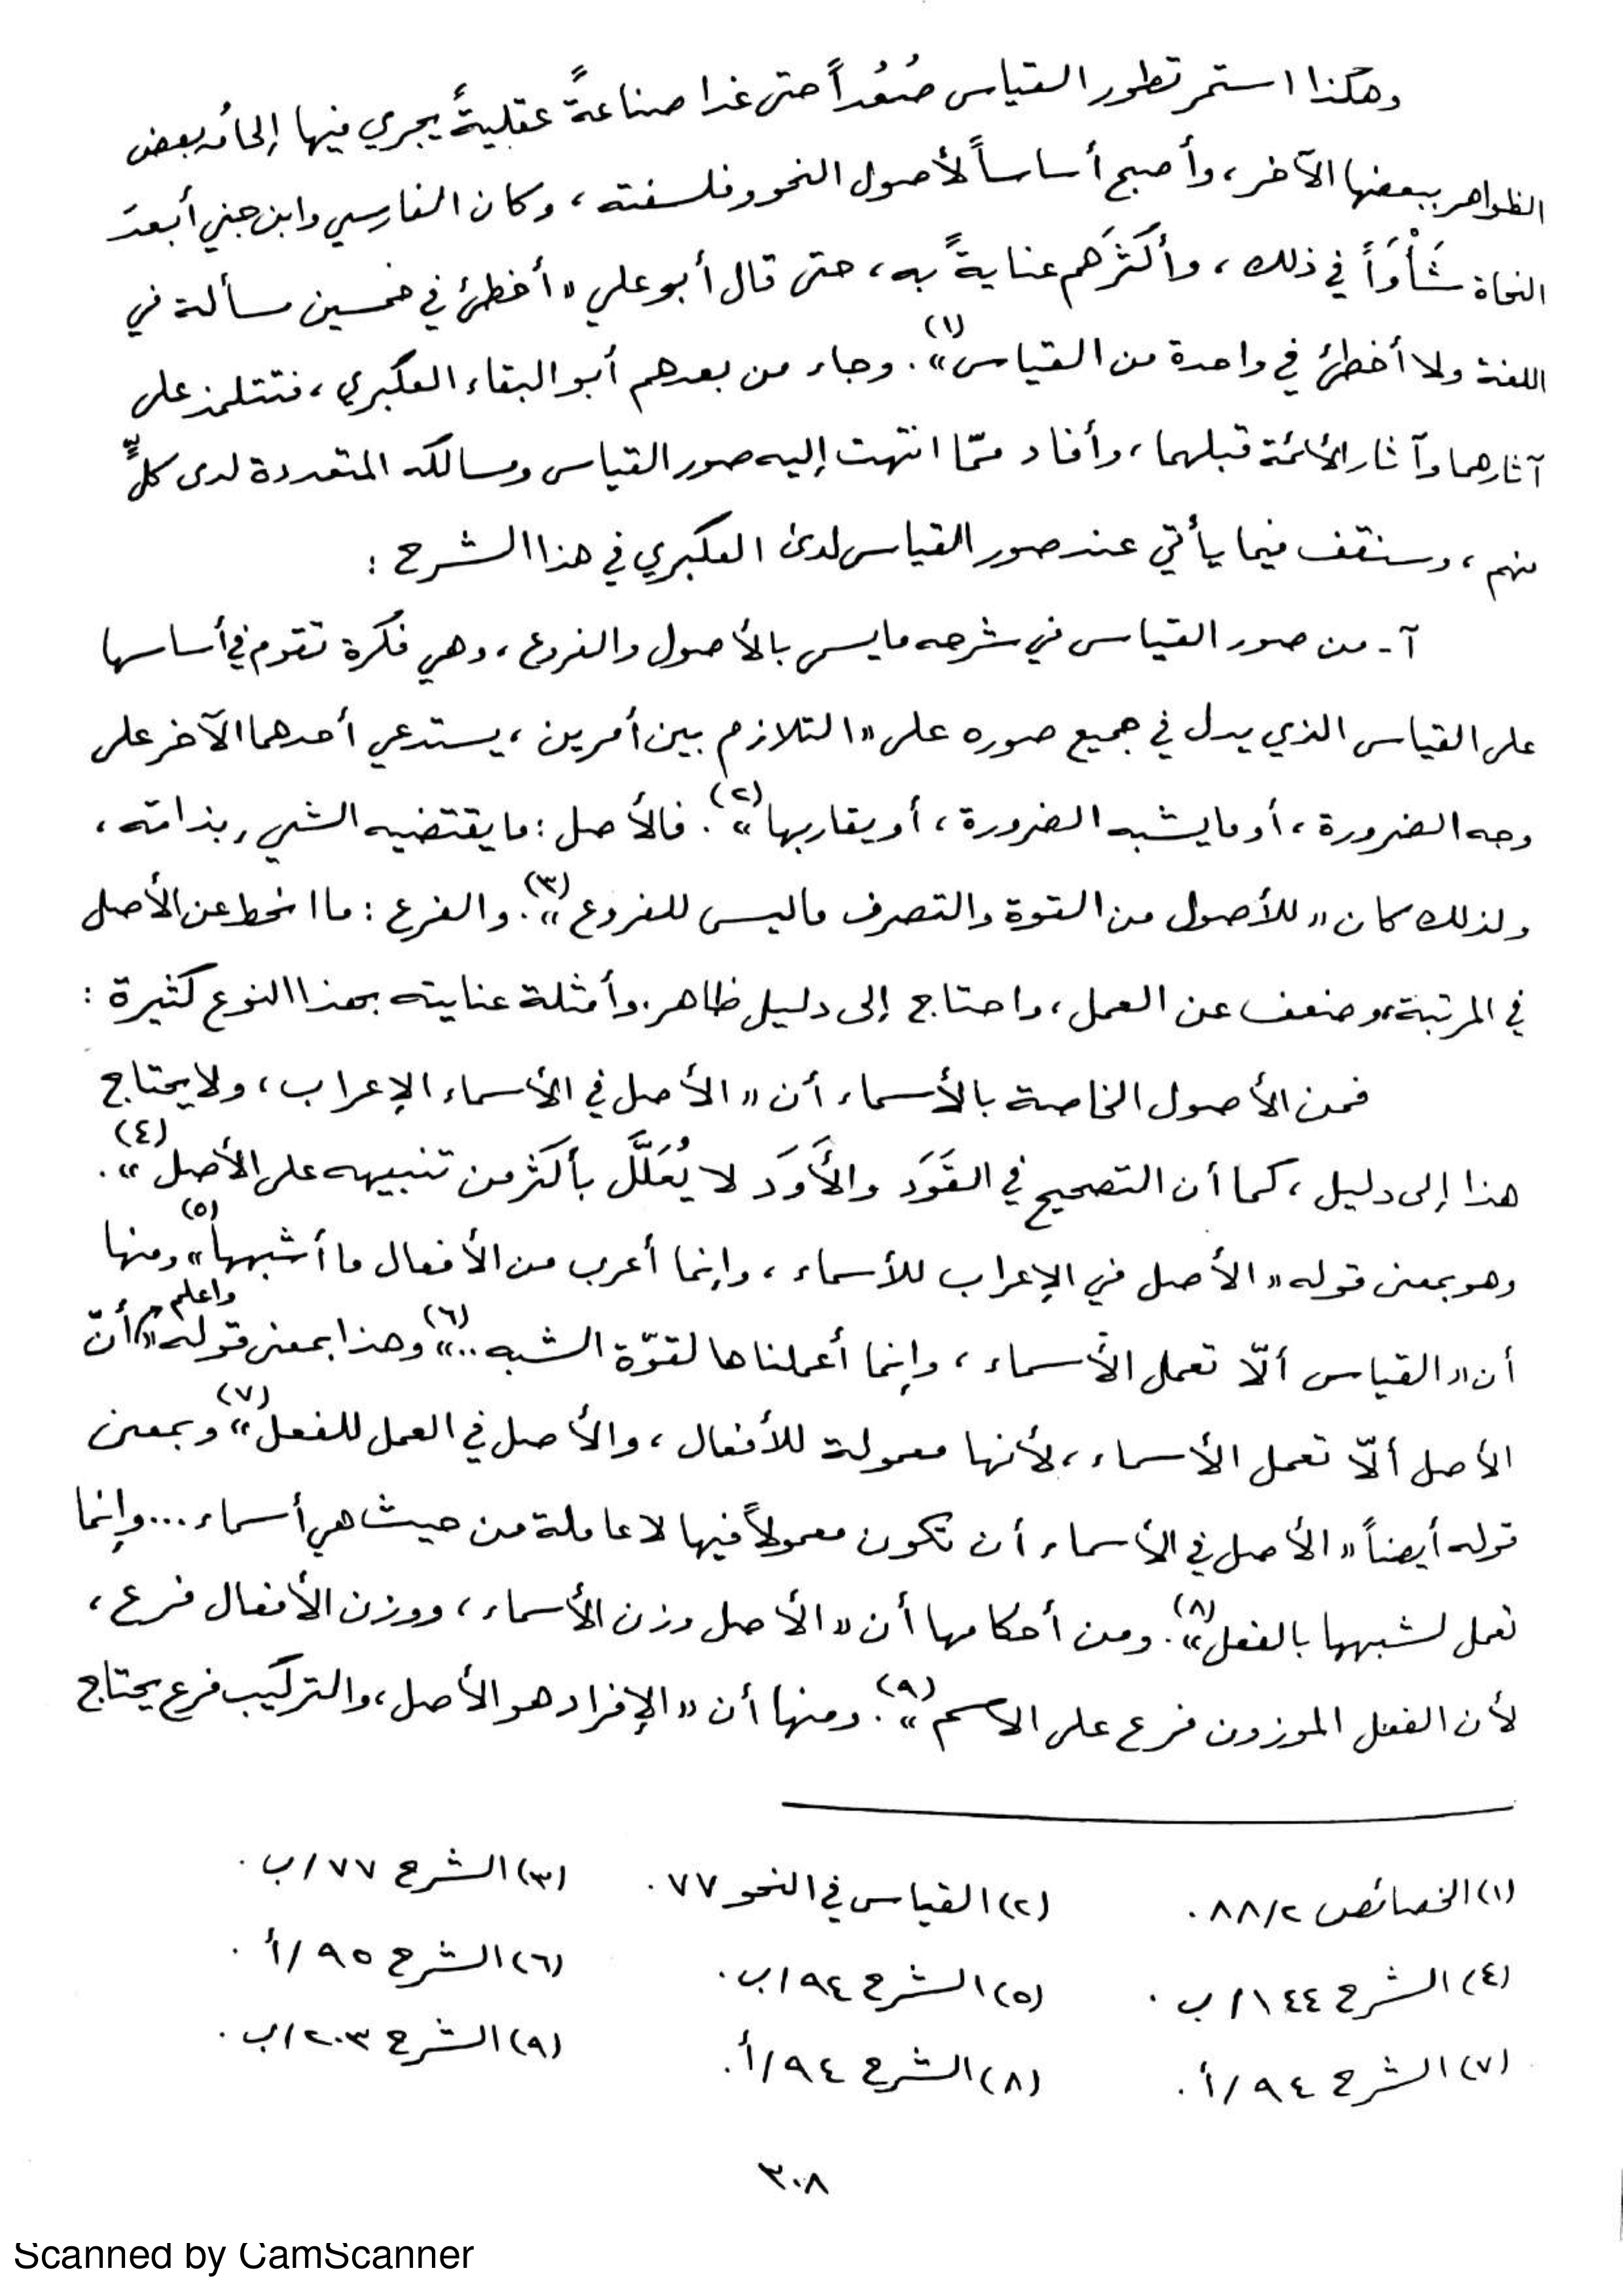 وهكذا استمر تطور القياس صُعُداً حتى غدا صناعةً عقليةً يجري فيها إلحاق بعض
الظواهر ببعضها الآخر، وأصبح أساساً لأصول النحو وفلسفته، وكان الفارسي وابن جني أبعدَ
النحاة شَأْوَاً في ذلك، وأكثَرَهم عنايةً به، حتى قال أبو علي «أخطئ في خمسين مسألة في
اللغة ولا أخطئ في واحدة من القياس»(١). وجاء من بعدهم أبو البقاء العكبري، فتتلمذ على
آثارهما وآثار الأئمة قبلهما، وأفاد ممّا انتهت إليه صور القياس ومسالكه المتعددة لدى كلٍّ
منهم، وسنقف فيما يأتي عند صور القياس لدى العكبري في هذا الشرح :
آ- من صور القياس في شرحه ما يسمى بالأصول والفروع، وهي فكرة تقوم في أساسها
على القياس الذي يدل في جميع صوره على «التلازم بين أمرين، يستدعي أحدهما الآخر على
وجه الضرورة، أو ما يشبه الضرورة، أو يقاربها»(٢). فالأصل : ما يقتضيه الشيء بذاته،
ولذلك كان «للأصول من القوة والتصرف ما ليس للفروع»(٣). والفرع : ما انحط عن الأصل
في المرتبة، وضعف عن العمل، واحتاج إلى دليل ظاهر. وأمثلة عنايته بهذا النوع كثيرة :
فمن الأصول الخاصة بالأسماء أن «الأصل في الأسماء الإعراب، ولا يحتاج
هذا إلى دليل، كما أن التصحيح في القَوَد والأَوَد لا يُعَلَّل بأكثر من تنبيهه على الأصل»(٤).
وهو بمعنى قوله «الأصل في الإعراب للأسماء، وإنما أعرب من الأفعال ما أشبهها»(٥) ومنها
أن «القياس ألّا تعمل الأسماء، وإنما أعملناها لقوّة الشبه..»(٦) وهذا بمعنى قوله «واعلم أنّ
الأصل ألّا تعمل الأسماء، لأنها معمولة للأفعال، والأصل في العمل للفعل»(٧) وبمعنى
قوله أيضاً «الأصل في الأسماء أن تكون معمولاً فيها لا عاملة من حيث هي أسماء... وإنما
تعمل لشبهها بالفعل»(٨). ومن أحكامها أن «الأصل وزن الأسماء، ووزن الأفعال فرع،
لأن الفعل الموزون فرع على الاسم»(٩). ومنها أن «الإفراد هو الأصل، والتركيب فرع يحتاج
(١) الخصائص ٨٨/٢. (٢) القياس في النحو ٧٧. (٣) الشرح ٧٧/ب.
(٤) الشرح ١٤٤/ب. (٥) الشرح ٩٤/ب. (٦) الشرح ٩٥/أ.
(٧) الشرح ٩٤/أ. (٨) الشرح ٩٤/أ. (٩) الشرح ٢٠٣/ب.
٣٠٨
Scanned by CamScanner